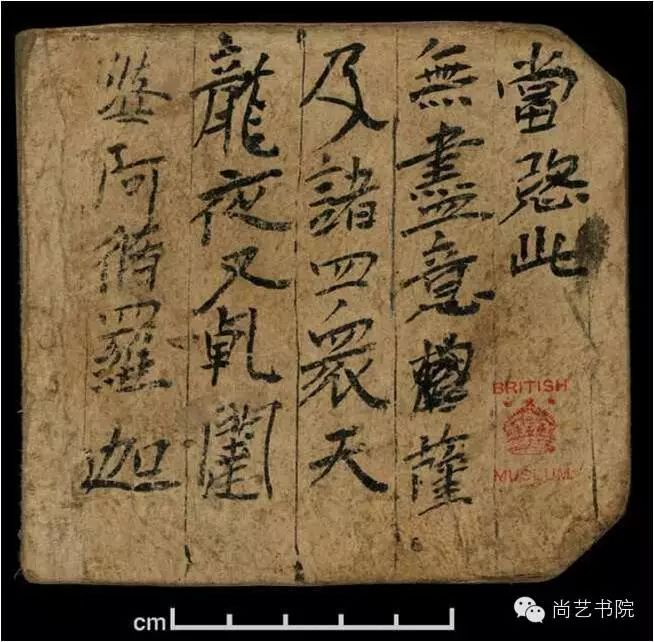 當愍此
無盡意菩薩
及諸四衆天
龍夜叉乹闥
婆阿脩羅迦
BRITISH
MUSEUM
cm
尚艺书院